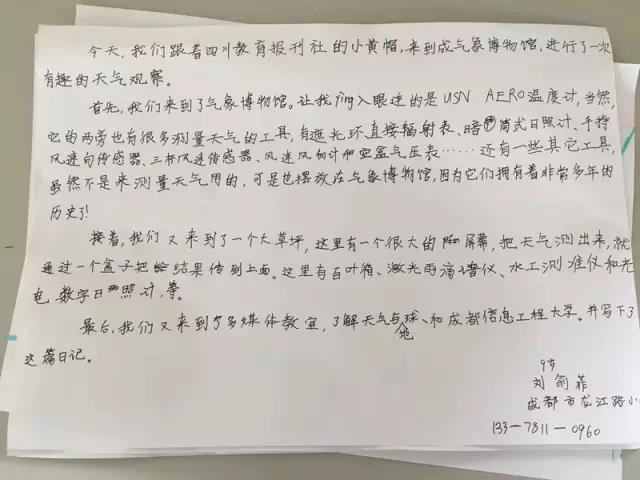 今天,我们跟着四川教育报刊社的小黄帽,来到成气象博物馆,进行了一次
有趣的天气观察。
首先,我们来到了气象博物馆。让我yǐng入眼连的是USN AERO温度计,当然,
它的两旁也有很多测量天气的工具,有遮光环直接辐射表、暗筒式日照计、手持
风速向传感器、三杯风速传感器、风速风向计和空盒气压表……还有一些其它工具,
虽然不是来测量天气用的,可是也摆放在气象博物馆,因为它们拥有着非常多年的
历史了!
接着,我们又来到了一个大草坪,这里有一个很大的屏幕,把天气测出来,就
通过一个盒子把结果传到上面。这里有百叶箱、激光雨滴谱仪、水工测准仪和光
电数字日照计,等。
最后,我们又来到了多媒体教室,了解天气与地球、和成都信息工程大学。并写下了
这篇日记。
9岁
刘俞菲
成都市龙江路小
133-7811-0960